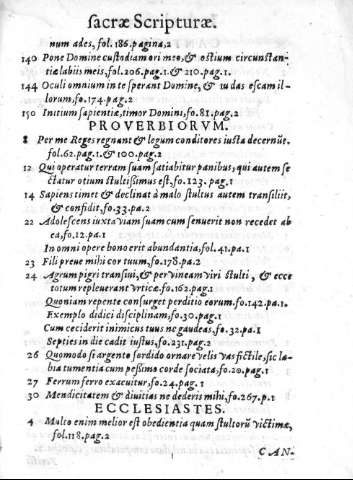 sacræ Scripturæ.
num ades, fol.186.pagina,2
140 Pone Domine custodiam ori meo, & ostium circunstan-
tiæ labiis meis, fol.206.pag.1.& 210.pag.1.
144 Oculi omnium in te sperant Domine, & tu das escam il-
lorum, fo.174.pag.2
150 Initium sapientiæ, timor Domini, fo.81.pag.2
PROVERBIORVM.
8 Per me Reges regnant & legum conditores iusta decernūt.
fol.62.pag.1.& 100.pag.2
12 Qui operatur terram suam satiabitur panibus, qui autem se
ctatur otium stultissimus est, fo.123.pag.1
14 Sapiens timet & declinat à malo stultus autem transiliit,
& confidit, fo.33.pa.2
22 Adolescens iuxta viam suam cum senuerit non recedet ab
ea, fo.12.pa.1
In omni opere bono erit abundantia, fol.41.pa.1
23 Fili præue mihi cor tuum, fo.178.pa.2
24 Agrum pigri transiui, & per vineam viri stulti, & ecce
totum repleuerant vrticæ.fo.162.pag.1
Quoniam repente consurget perditio eorum.fo.142.pa.1.
Exemplo didici disciplinam, fo.30.pag.1
Cum ceciderit inimicus tuus nc gaudeas, fo.32.pa.1
Septies in die cadit iustus, fo.231.pag.2
26 Quomodo si argento sordido ornare velis vas fictile, sic la-
bia tumentia cum pessimo corde sociata, fo.20.pag.1
27 Ferrum ferro exacuitur, fo.24.pag.1
30 Mendicitatem & diuitias ne dederis mihi, fo.267.p.1
ECCLESIASTES.
4 Multo enim melior est obedientia quam stultorū victimæ,
fol.118.pag.2
CAN-